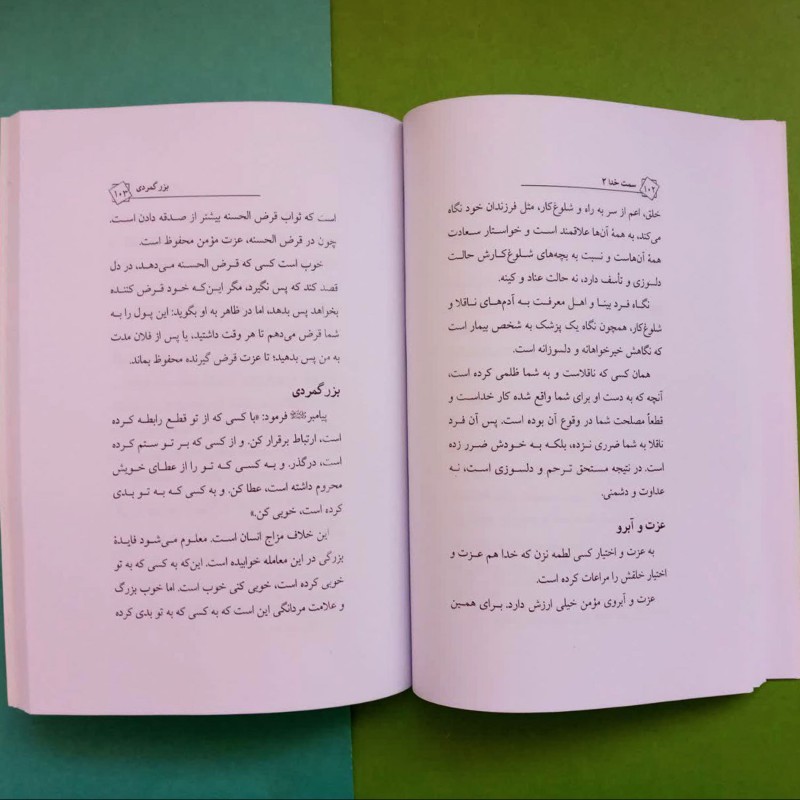 ۱۰۲ سمت خدا ۲
خلق، اعم از سر به راه و شلوغ‌کار، مثل فرزندان خود نگاه
می‌کند، به همهٔ آن‌ها علاقمند است و خواستار سعادت
همهٔ آن‌هاست و نسبت به بچه‌های شلوغ‌کارش حالت
دلسوزی و تأسف دارد، نه حالت عناد و کینه.
نگاه فرد بینا و اهل معرفت به آدم‌های ناقلا و
شلوغ‌کار، همچون نگاه یک پزشک به شخص بیمار است
که نگاهش خیرخواهانه و دلسوزانه است.
همان کسی که ناقلاست و به شما ظلمی کرده است،
آنچه که به دست او برای شما واقع شده کار خداست و
قطعاً مصلحت شما در وقوع آن بوده است. پس آن فرد
ناقلا به شما ضرری نزده، بلکه به خودش ضرر زده
است. در نتیجه مستحق ترحم و دلسوزی است، نه
عداوت و دشمنی.
عزت و آبرو
به عزت و اختیار کسی لطمه نزن که خدا هم عزت و
اختیار خلقش را مراعات کرده است.
عزت و آبروی مؤمن خیلی ارزش دارد. برای همین
بزرگمردی ۱۰۳
است که ثواب قرض الحسنه بیشتر از صدقه دادن است.
چون در قرض الحسنه، عزت مؤمن محفوظ است.
خوب است کسی که قرض الحسنه می‌دهد، در دل
قصد کند که پس نگیرد، مگر این‌که خود قرض کننده
بخواهد پس بدهد، اما در ظاهر به او بگوید: این پول را به
شما قرض می‌دهم تا هر وقت داشتید، یا پس از فلان مدت
به من پس بدهید؛ تا عزت قرض گیرنده محفوظ بماند.
بزرگمردی
پیامبرﷺ فرمود: «با کسی که از تو قطع رابطه کرده
است، ارتباط برقرار کن. و از کسی که بر تو ستم کرده
است، درگذر. و به کسی که تو را از عطای خویش
محروم داشته است، عطا کن. و به کسی که به تو بدی
کرده است، خوبی کن.»
این خلاف مزاج انسان است. معلوم می‌شود فایدهٔ
بزرگی در این معامله خوابیده است. این‌که به کسی که به تو
خوبی کرده است، خوبی کنی خوب است. اما خوب بزرگ
و علامت مردانگی این است که به کسی که به تو بدی کرده